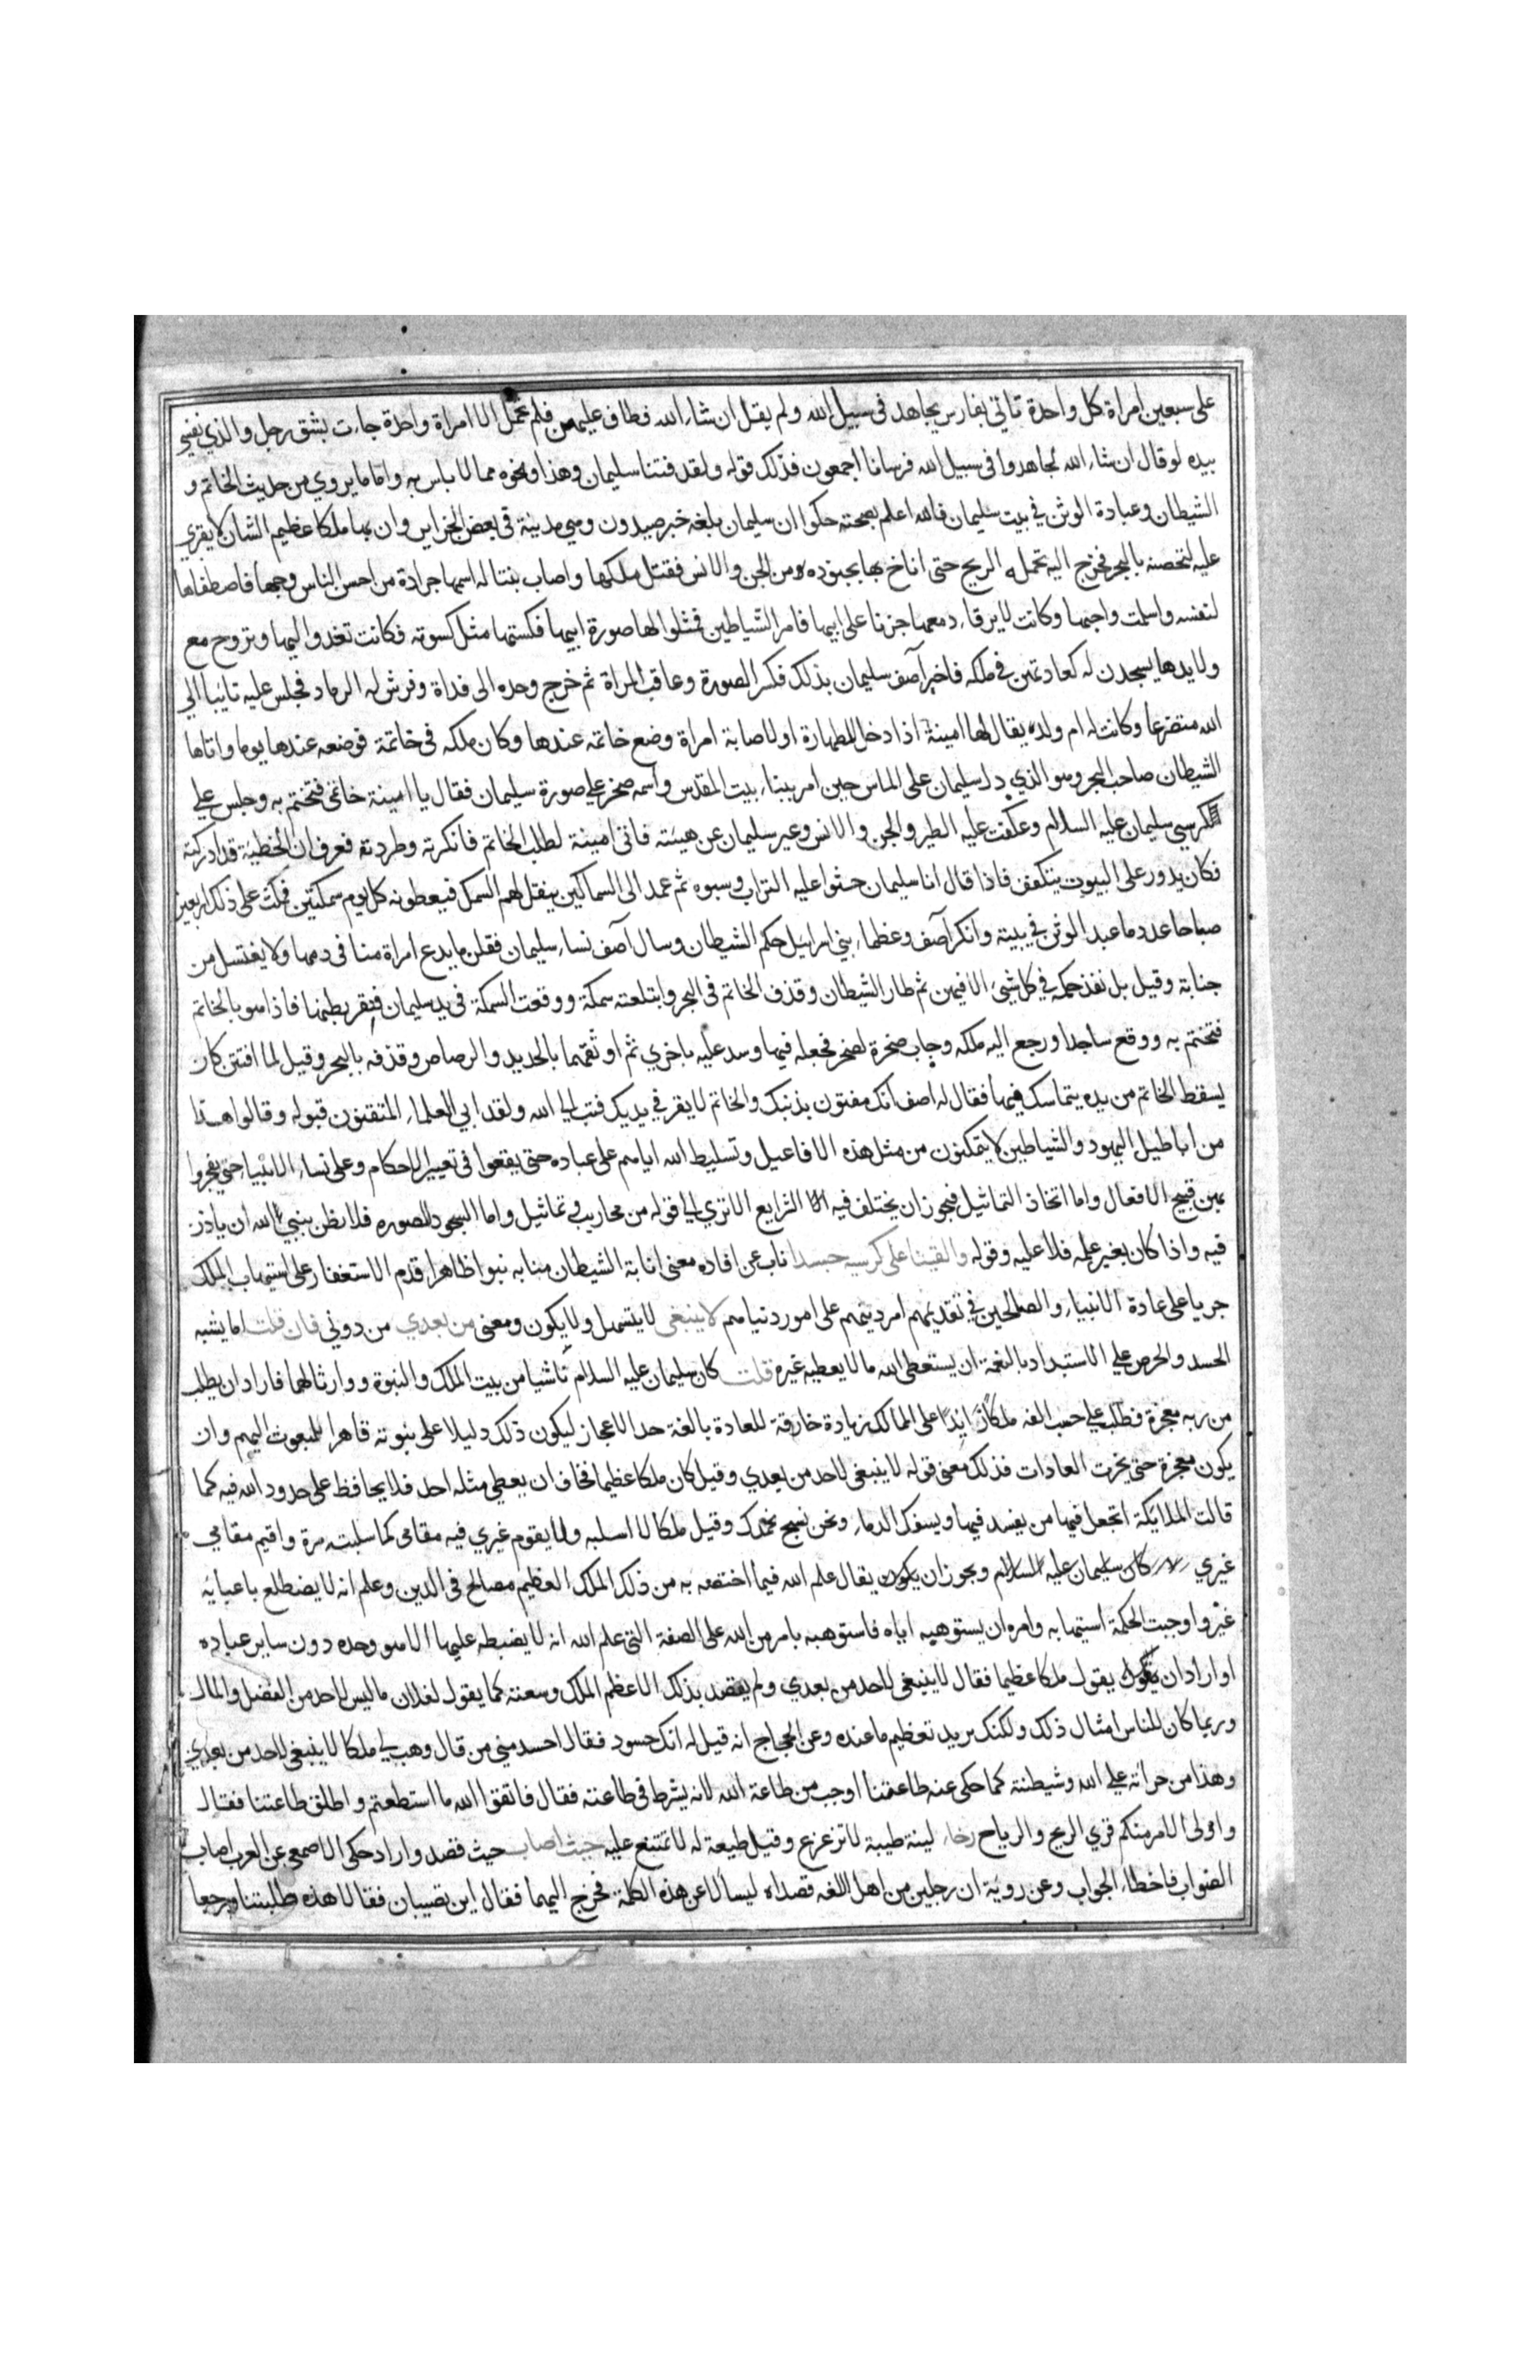 على سبعين امراة كل واحدة تاتي بفارس يجاهد في سبيل الله ولم يقل ان شاء الله فطاف عليهن فلم تحمل الا امراة واحدة جاءت بشق رجل والذي نفسي
بيده لو قال ان شاء الله لجاهدوا في سبيل الله فرسانا اجمعون فذلك قوله ولقد فتنا سليمان وهذا ونحوه مما لا باس به واما ما يروي من حديث الخاتم و
الشيطان وعبادة الوثن في بيت سليمان فالله اعلم بصحته حكوا ان سليمان بلغه خبر صيدون وهي مدينة في بعض الجزاير وان بها ملكا عظيم الشان لا يقوي
عليه لتحصنه بالبحر فخرج اليه تحمله الريح حتى اناخ بها بجنوده من الجن والانس فقتل ملكها واصاب بنتا له اسمها جرادة من احسن الناس وجها فاصطفاها
لنفسه واسلمت واحبها وكانت لا يرقاء دمعها حزنا على ابيها فامر الشياطين فمثلوا لها صورة ابيها فكستها مثل كسوته فكانت تغدوا اليها وتروح مع
ولايدها يسجدن له كعادتهن في ملكه فاخبر آصف سليمان بذلك فكسر الصورة وعاقب المراة ثم خرج وحده الى فلاة وفرش له الرماد فجلس عليه تايبا الي
الله متضرعا وكانت له ام ولد يقال لها امينة اذا دخل للطهارة او لاصابة امراة وضع خاتمه عندها وكان ملكه في خاتمه فوضعه عندها يوما واتاها
الشيطان صاحب البحر وهو الذي دل سليمان على الماس حين امر ببناء بيت المقدس واسمه صخر علي صورة سليمان فقال يا امينة خاتمي فتختم به وجلس علي
كرسي سليمان عليه السلام وعكفت عليه الطير والجن والانس وغير سليمان عن هيئته فاتى امينة لطلب الخاتم فانكرته وطردته فعرف ان الخطيئة قد ادركته
فكان يدور على البيوت يتكفف فاذا قال انا سليمان حثوا عليه التراب وسبوه ثم عمد الى السماكين ينقل لهم السمك فيعطونه كل يوم سمكتين فمكث على ذلك اربعين
صباحا عدد ما عبد الوثن في بيته وانكر آصف وعظماء بني اسرائيل حكم الشيطان وسال آصف نساء سليمان فقلن ما يدع امراة منا في دمها ولا يغتسل من
جنابة وقيل بل نفذ حكمه في كل شيء الا فيهن ثم طار الشيطان وقذف الخاتم في البحر وابتلعته سمكة ووقعت السمكة في يد سليمان فبقر بطنها فاذا هو بالخاتم
فتختم به ووقع ساجدا ورجع اليه ملكه وجاب صخرة لصخر فجعله فيها وسد عليه باخري ثم اوثقهما بالحديد والرصاص وقذفه بالبحر وقيل لما افتتن كان
يسقط الخاتم من يده يتماسك فيها فقال له اصف انك مفتون بذنبك والخاتم لا يقر في يديك فتب الي الله ولقد ابي العلماء المتقنون قبوله وقالوا هذا
من اباطيل اليهود والشياطين لا يتمكنون من مثل هذه الافاعيل وتسليط الله اياهم على عباده حتى يقعوا في تغيير الاحكام وعلى نساء الانبياء حتي يفجروا
بهن قبيح الافعال واما اتخاذ التماثيل فيجوز ان يختلف فيه الشرايع الا تري الي قوله من محاريب وتماثيل واما السجود للصوره فلا يظن بنبي الله ان ياذن
فيه واذا كان بغير علمه فلا عليه وقوله والقينا على كرسيه جسدا ناب عن افاده معنى انابة الشيطان منابه نبوا ظاهرا قدم الاستغفار على استيهاب الملك
جريا على عادة الانبياء والصالحين في تقديمهم امر دينهم على امور دنياهم لا ينبغي لا يتسهل ولا يكون ومعنى من بعدي من دوني فان قلت اما يشبه
الحسد والحرص علي الاستبداد بالنعمة ان يستعطى الله ما لا يعطيه غيره قلت كان سليمان عليه السلام ناشيا من بيت الملك والنبوة ووارثا لهما فاراد ان يطلب
من ربه معجزة فطلب علي حسب الفه ملكا زايدا على الممالك زيادة خارقة للعادة بالغة حد الاعجاز ليكون ذلك دليلا على نبوته قاهرا للمبعوث اليهم وان
يكون معجزة حتى يخرت العادات فذلك معنى قوله لا ينبغي لاحد من بعدي وقيل كان ملكا عظيما فخاف ان يعطي مثله احد فلا يحافظ على حدود الله فيه كما
قالت الملائكة اتجعل فيها من يفسد فيها ويسفك الدماء ونحن نسبح بحمدك وقيل ملكا لا اسلبه ولا يقوم غيري فيه مقامى كما سلبته مرة واقيم مقامي
غيري كان سليمان عليه السلام ويجوز ان يكون يقال علم الله فيما اختصه به من ذلك الملك العظيم مصالح في الدين وعلم انه لا يضطلع باعبائه
غيره واوجبت الحكمة استيهابه وامره ان يستوهبه اياه فاستوهبه بامر من الله على الصفة التي علم الله انه لا يضبطه عليها الا هو وحده دون ساير عباده
او اراد ان يقول ملكا عظيما فقال لا ينبغي لاحد من بعدي ولم يقصد بذلك الا عظم الملك وسعته كما يقول لفلان ما ليس لاحد من الفضل والمال
وربما كان للناس امثال ذلك ولكنك تريد تعظيم ما عنده وعن الحجاج انه قيل له انك حسود فقال احسد مني من قال وهب لي ملكا لا ينبغي لاحد من بعدي
وهذا من جراته علي الله وشيطنته كما حكى عنه طاعتنا اوجب من طاعة الله لانه يشرط في طاعته فقال فاتقوا الله ما استطعتم واطلق طاعتنا فقال
واولى الامر منكم قري الريح والرياح رخاء لينة طيبة لا تزعزع وقيل طيعة له لا تمتنع عليه حيث اصاب حيث قصد واراد حكى الاصمعي عن العرب اصاب
الصواب فاخطاء الجواب وعن روية ان رجلين من اهل اللغه قصداه ليسالا عن هذه الكلمة فخرج اليهما فقال اين تصيبان فقالا هذه طلبتنا ورجعا